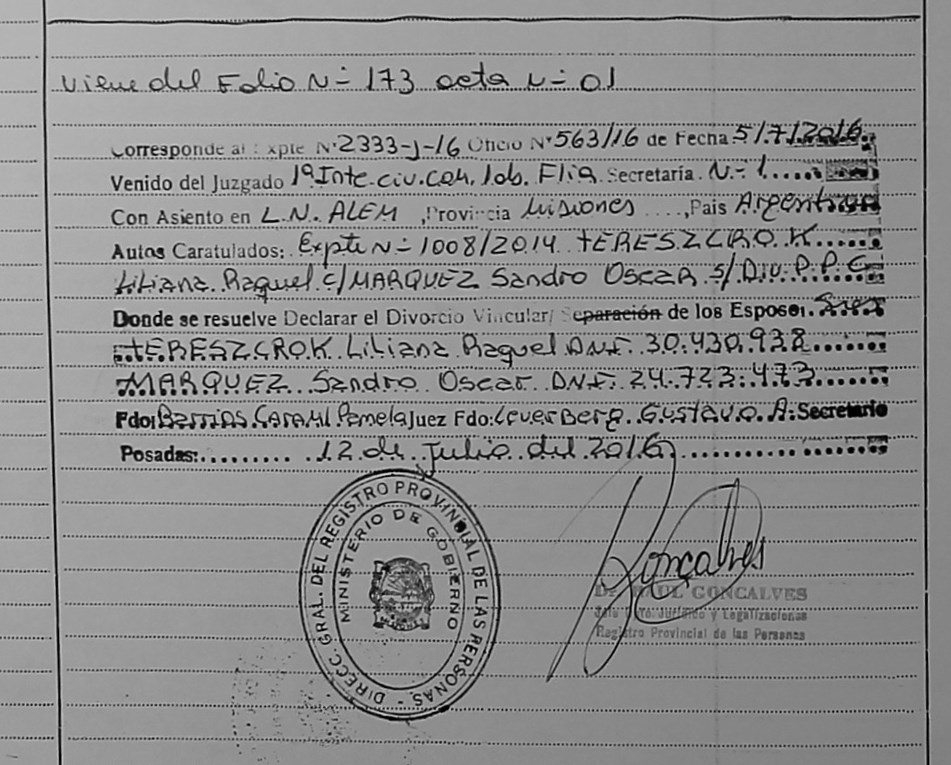 Viene del Folio N= 173 acta N= 01
Corresponde al Expte N° 2333-J-16 Oficio N° 563/16 de Fecha 5/7/2016.
Venido del Juzgado 1º Inte. civ. com. lab. Flia. Secretaría. N.= 1
Con Asiento en L.N. ALEM ,Provincia Misiones ....,Pais Argentina
Autos Caratulados: Expte N= 1008/2014 TERESZCROK
Liliana Raquel c/ MARQUEZ Sandro Oscar s/ Div. P.P.C.
Donde se resuelve Declarar el Divorcio Vincular/ Separación de los Esposos:
TERESZCROK Liliana Raquel DNI. 30.430.938
MARQUEZ Sandro Oscar DNI: 24.723.473
Fdo: Barrios Caram Pamela Juez Fdo: Leverberg Gustavo A. Secretario
Posadas: 12 de Julio del 2016
DIRECC. GRAL. DEL REGISTRO PROVINCIAL DE LAS PERSONAS -
MINISTERIO DE GOBIERNO
Goncalves
GONCALVES
Jurídico y Legalizaciones
Registro Provincial de las Personas